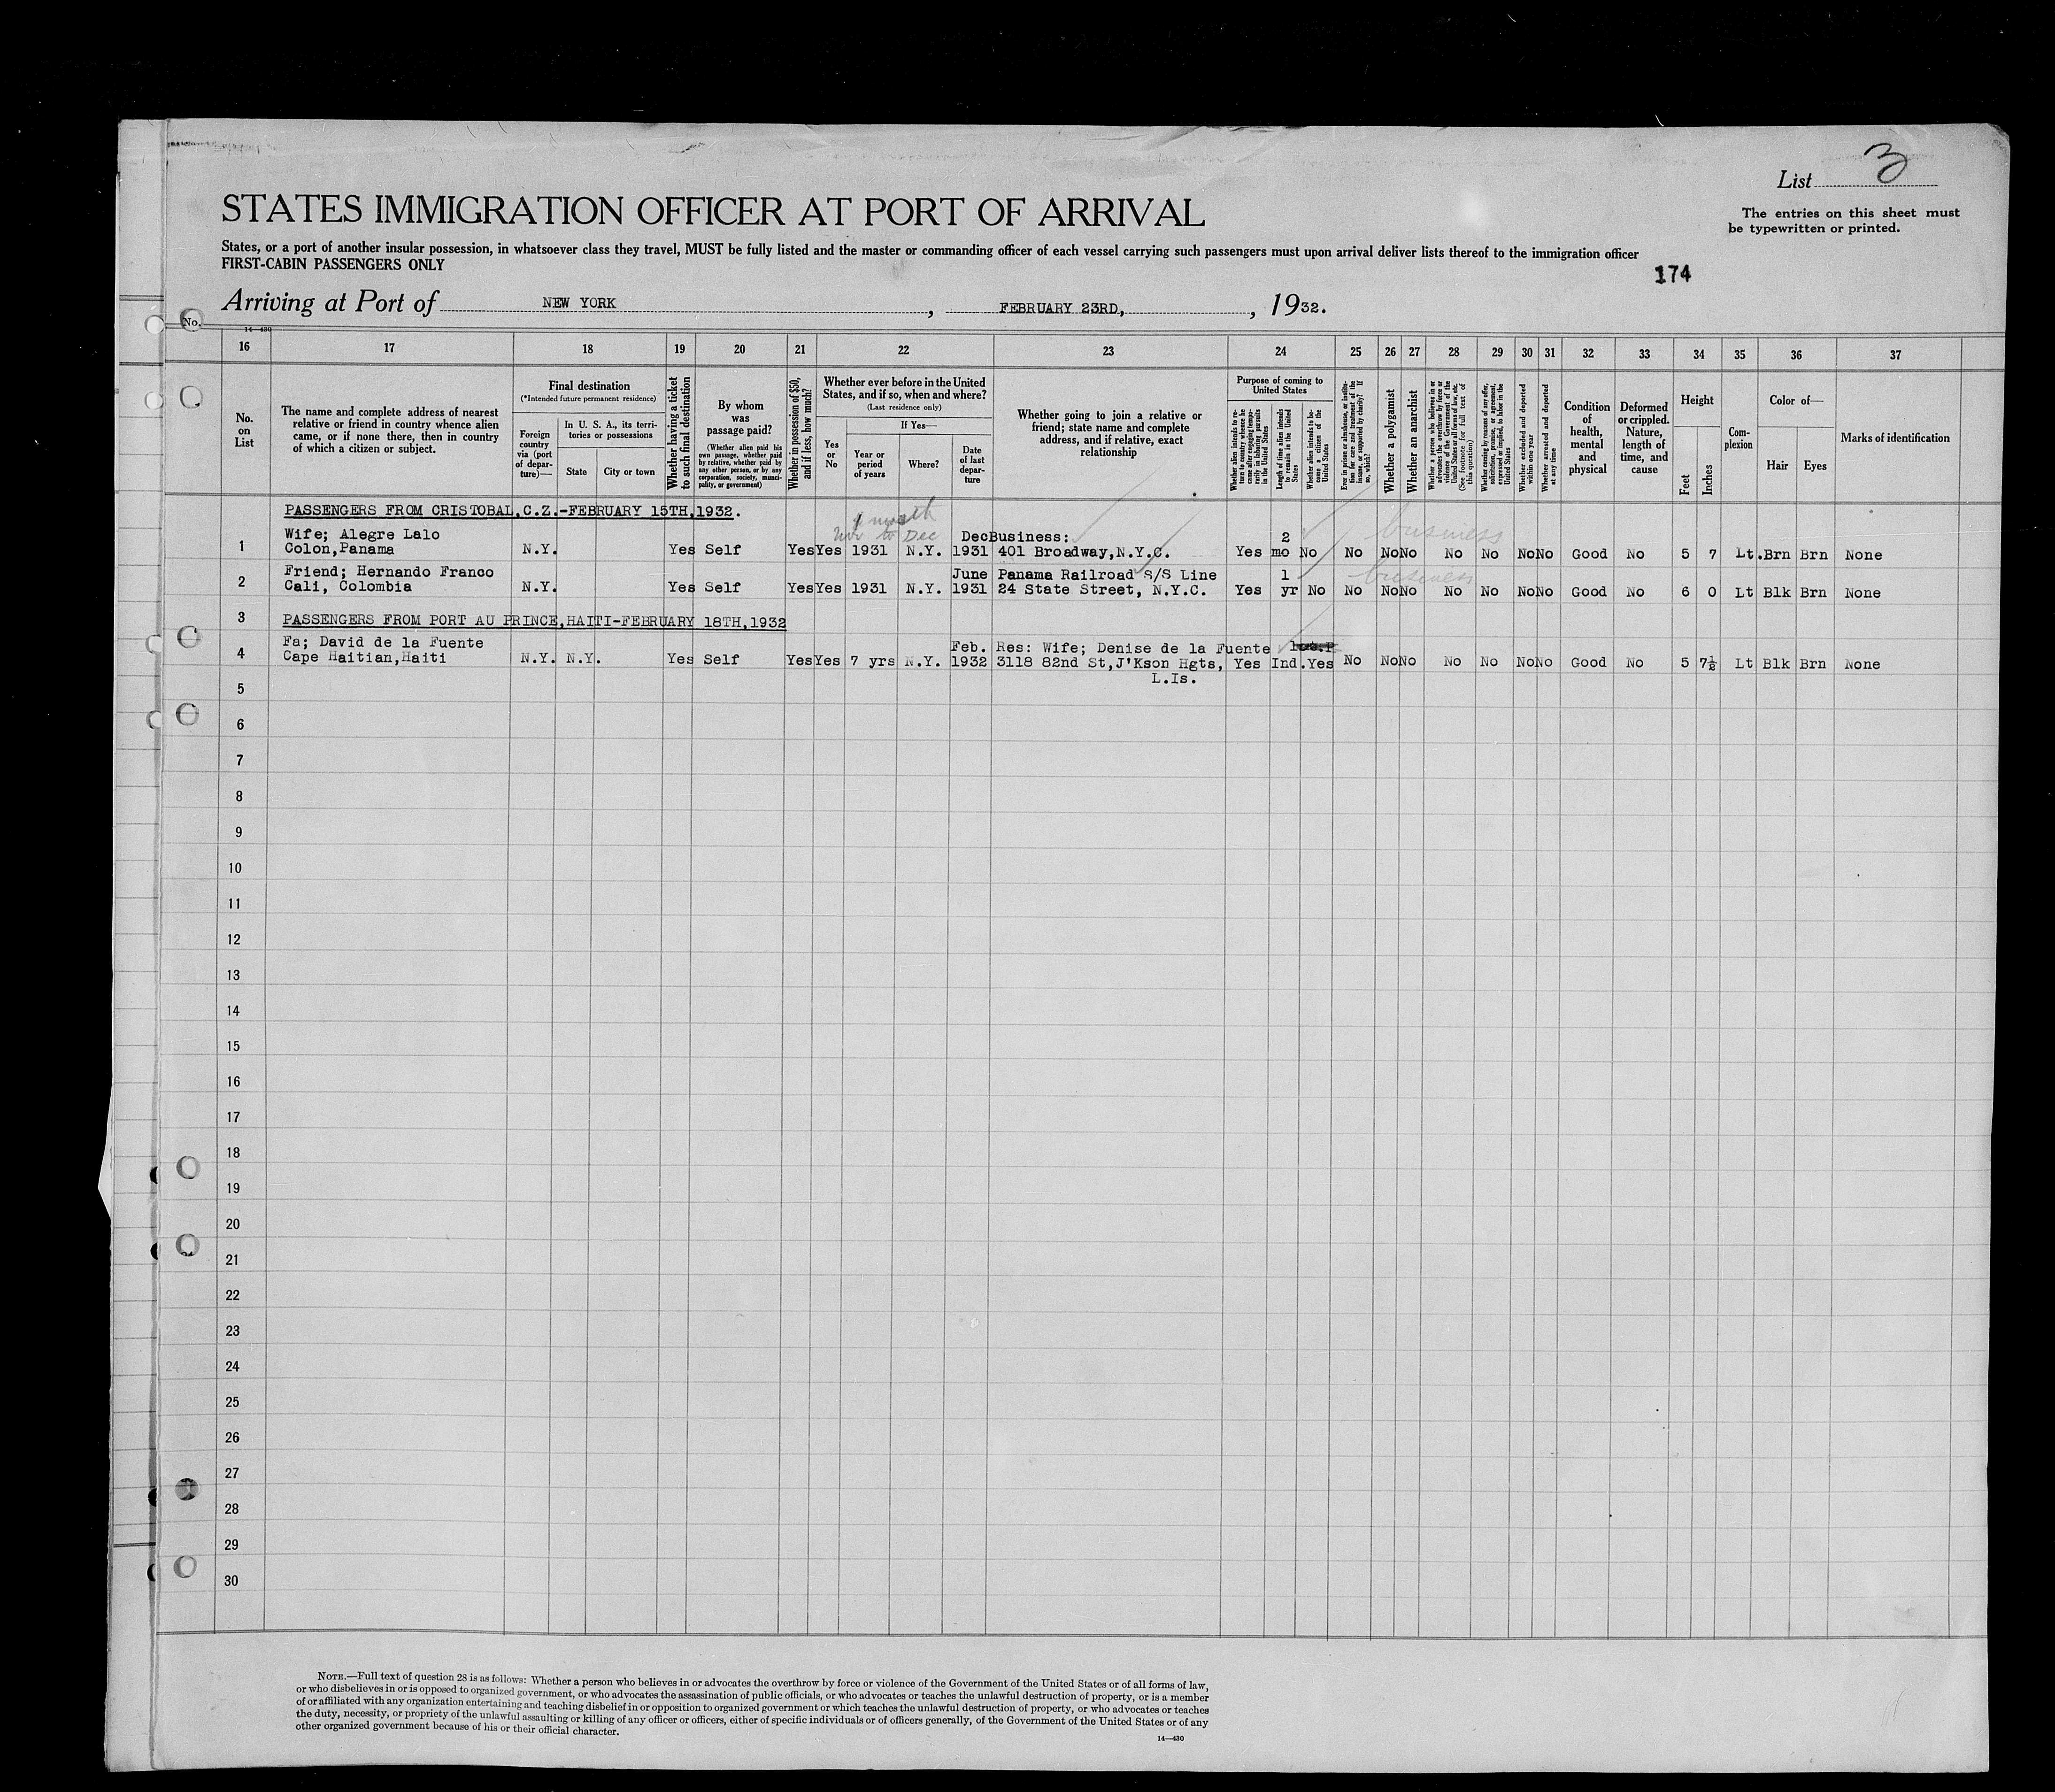 List 3
STATES IMMIGRATION OFFICER AT PORT OF ARRIVAL
The entries on this sheet must
be typewritten or printed.
States, or a port of another insular possession, in whatsoever class they travel, MUST be fully listed and the master or commanding officer of each vessel carrying such passengers must upon arrival deliver lists thereof to the immigration officer
FIRST-CABIN PASSENGERS ONLY
174
Arriving at Port of NEW YORK, FEBRUARY 23RD, , 1932.
No.
14—430
16 17 18 19 20 21 22 23 24 25 26 27 28 29 30 31 32 33 34 35 36 37
No. on List
The name and complete address of nearest relative or friend in country whence alien came, or if none there, then in country of which a citizen or subject.
Final destination
(*Intended future permanent residence)
Foreign country via (port of departure)—
In U. S. A., its territories or possessions
State
City or town
Whether having a ticket to such final destination
By whom was passage paid?
(Whether alien paid his own passage, whether paid by relative, whether paid by any other person, or by any corporation, society, municipality, or government)
Whether in possession of $50, and if less, how much?
Whether ever before in the United States, and if so, when and where?
(Last residence only)
Yes or No
If Yes—
Year or period of years
Where?
Date of last departure
Whether going to join a relative or friend; state name and complete address, and if relative, exact relationship
Purpose of coming to United States
Whether alien intends to return to country whence he came after engaging temporarily in laboring pursuits in the United States
Length of time alien intends to remain in the United States
Whether alien intends to become a citizen of the United States
Ever in prison or almshouse, or institution for care and treatment of the insane, or supported by charity? If so, which?
Whether a polygamist
Whether an anarchist
Whether a person who believes in or advocates the overthrow by force or violence of the Government of the United States or all forms of law, etc. (See footnote for full text of this question)
Whether coming by reasons of any offer, solicitation, promise, or agreement, expressed or implied, to labor in the United States
Whether excluded and deported within one year
Whether arrested and deported at any time
Condition of health, mental and physical
Deformed or crippled. Nature, length of time, and cause
Height
Feet
Inches
Complexion
Color of—
Hair
Eyes
Marks of identification
PASSENGERS FROM CRISTOBAL,C.Z.-FEBRUARY 15TH,1932.
1 month
Nov to Dec
business
Wife; Alegre Lalo Dec Business: 2
1 Colon,Panama N.Y. Yes Self Yes Yes 1931 N.Y. 1931 401 Broadway,N.Y.C. Yes mo No No No No No No No No Good No 5 7 Lt. Brn Brn None
Friend; Hernando Franco June Panama Railroad S/S Line 1 business
2 Cali, Colombia N.Y. Yes Self Yes Yes 1931 N.Y. 1931 24 State Street, N.Y.C. Yes yr No No No No No No No No Good No 6 0 Lt Blk Brn None
3 PASSENGERS FROM PORT AU PRINCE,HAITI-FEBRUARY 18TH,1932
Fa; David de la Fuente Feb. Res: Wife; Denise de la Fuente
4 Cape Haitian,Haiti N.Y. N.Y. Yes Self Yes Yes 7 yrs N.Y. 1932 3118 82nd St,J'Kson Hgts, Yes Ind. Yes No No No No No No No Good No 5 7½ Lt Blk Brn None
L.Is.
5
6
7
8
9
10
11
12
13
14
15
16
17
18
19
20
21
22
23
24
25
26
27
28
29
30
NOTE.—Full text of question 28 is as follows: Whether a person who believes in or advocates the overthrow by force or violence of the Government of the United States or of all forms of law,
or who disbelieves in or is opposed to organized government, or who advocates the assassination of public officials, or who advocates or teaches the unlawful destruction of property, or is a member
of or affiliated with any organization entertaining and teaching disbelief in or opposition to organized government or which teaches the unlawful destruction of property, or who advocates or teaches
the duty, necessity, or propriety of the unlawful assaulting or killing of any officer or officers, either of specific individuals or of officers generally, of the Government of the United States or of any
other organized government because of his or their official character.
14—430